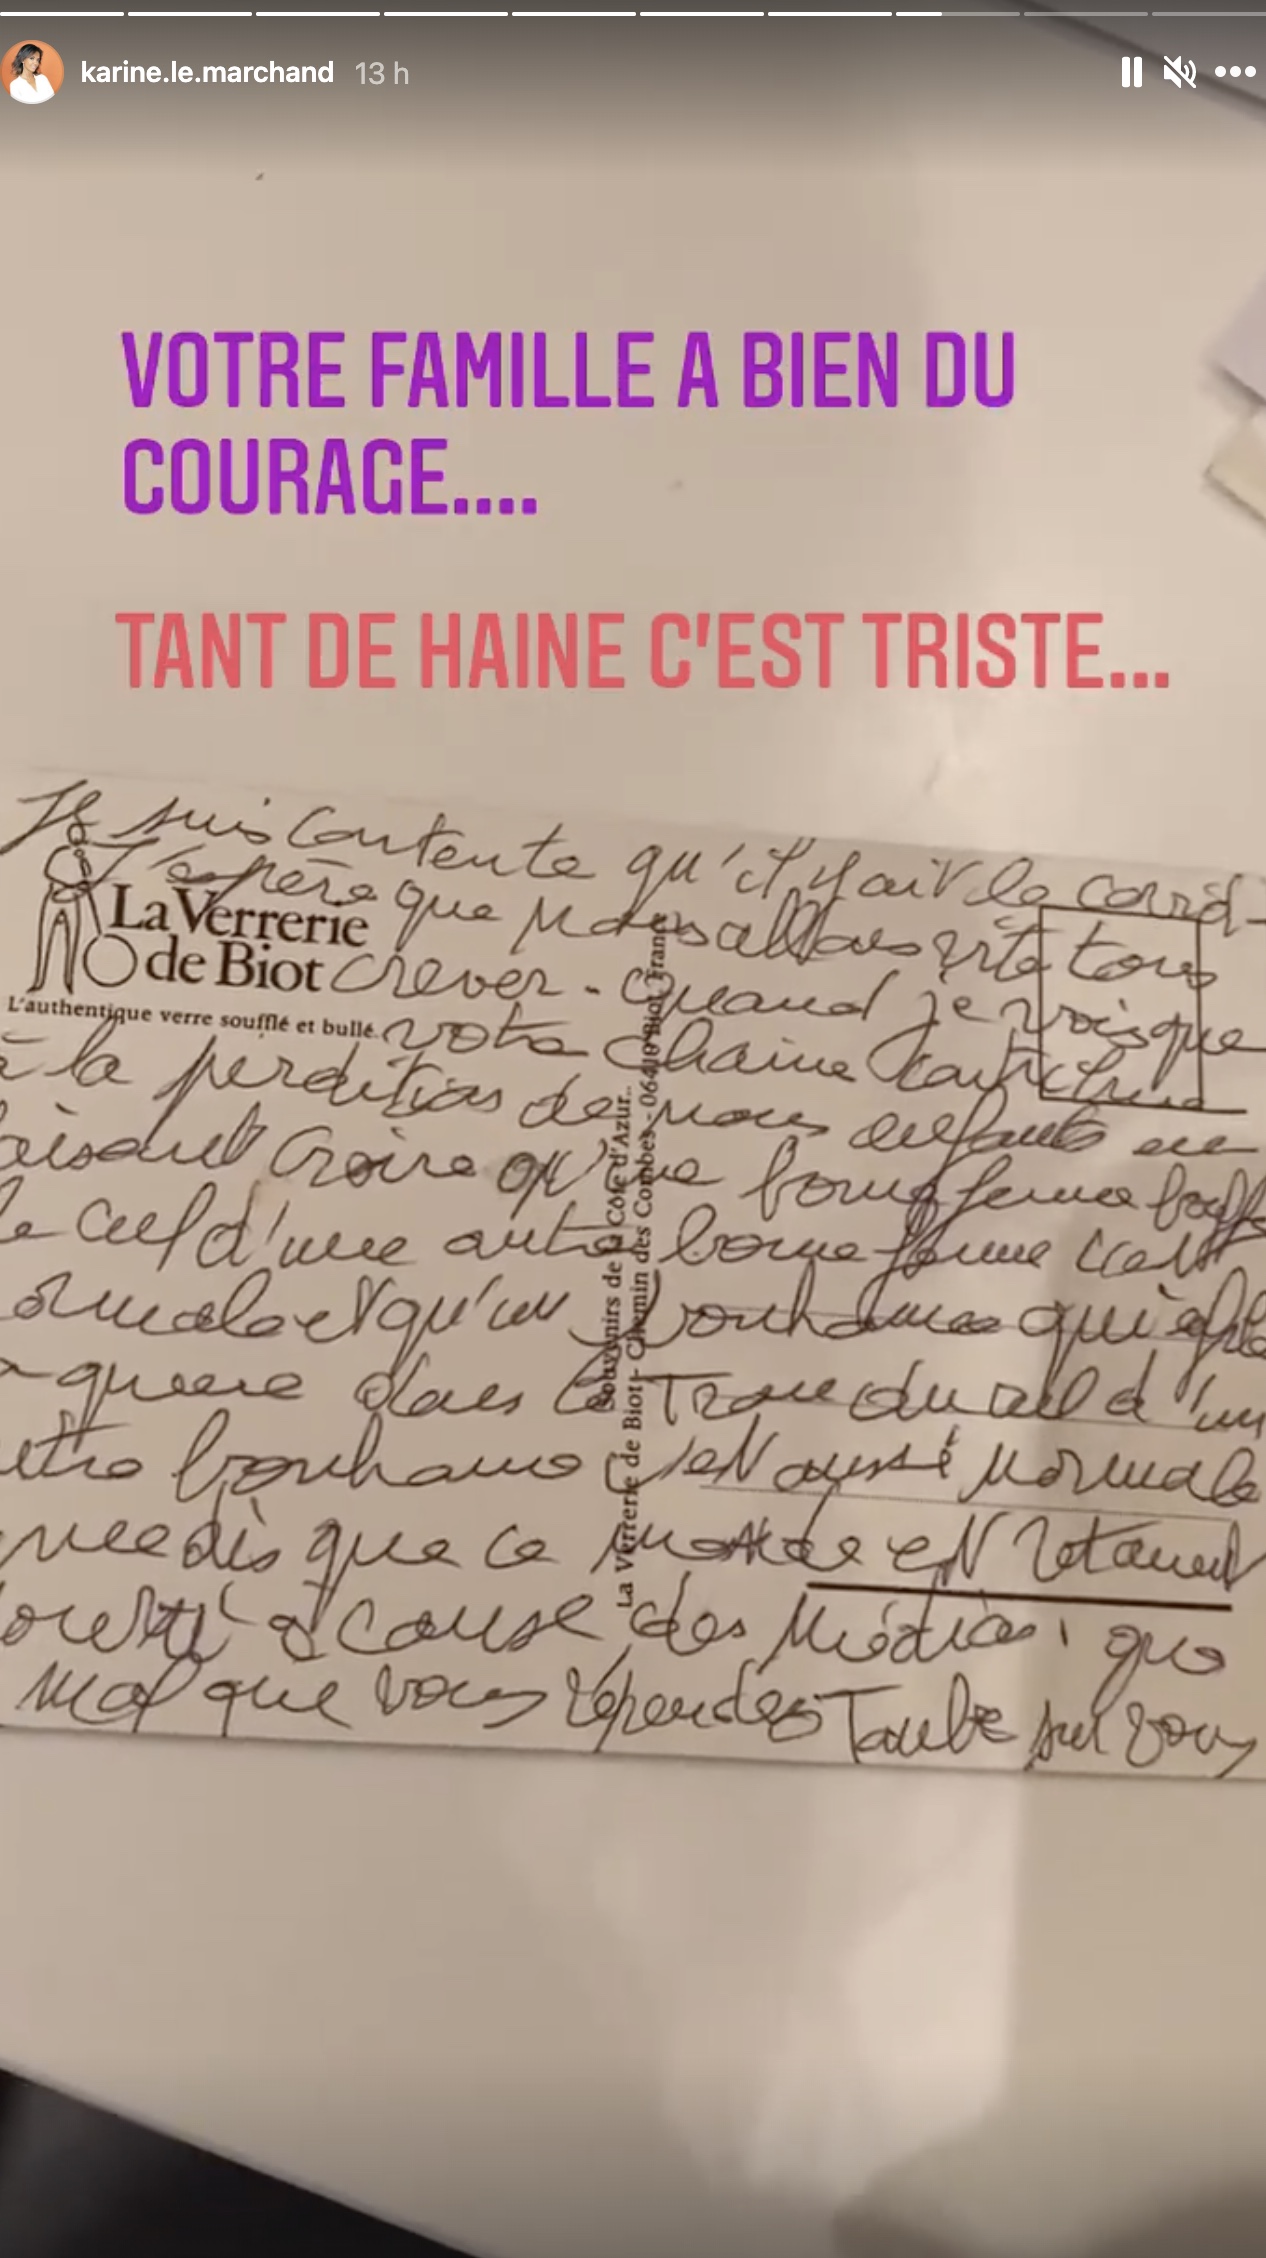 karine.le.marchand 13 h
VOTRE FAMILLE A BIEN DU
COURAGE....
TANT DE HAINE C'EST TRISTE...
Je suis contente qu'il y ait le covid-
J'espère que nous allons vite tous
La Verrerie
de Biot
L'authentique verre soufflé et bullé.
crever. quand je vois que
votre chaine
à la perdition de nous enfants en
croire qu'une bonne femme
le cul d'une autre bonne femme c'est
et qu'un bonhome qui
dans le Trou du cul d'un
bonhome c'est aussi normale
dis que ce monde est
à cause des Médias, que
mal que vous répendez Tombe sur vous
Souvenirs de la Côte d'Azur..
La Verrerie de Biot - Chemin des Combes - 06410 Biot, France